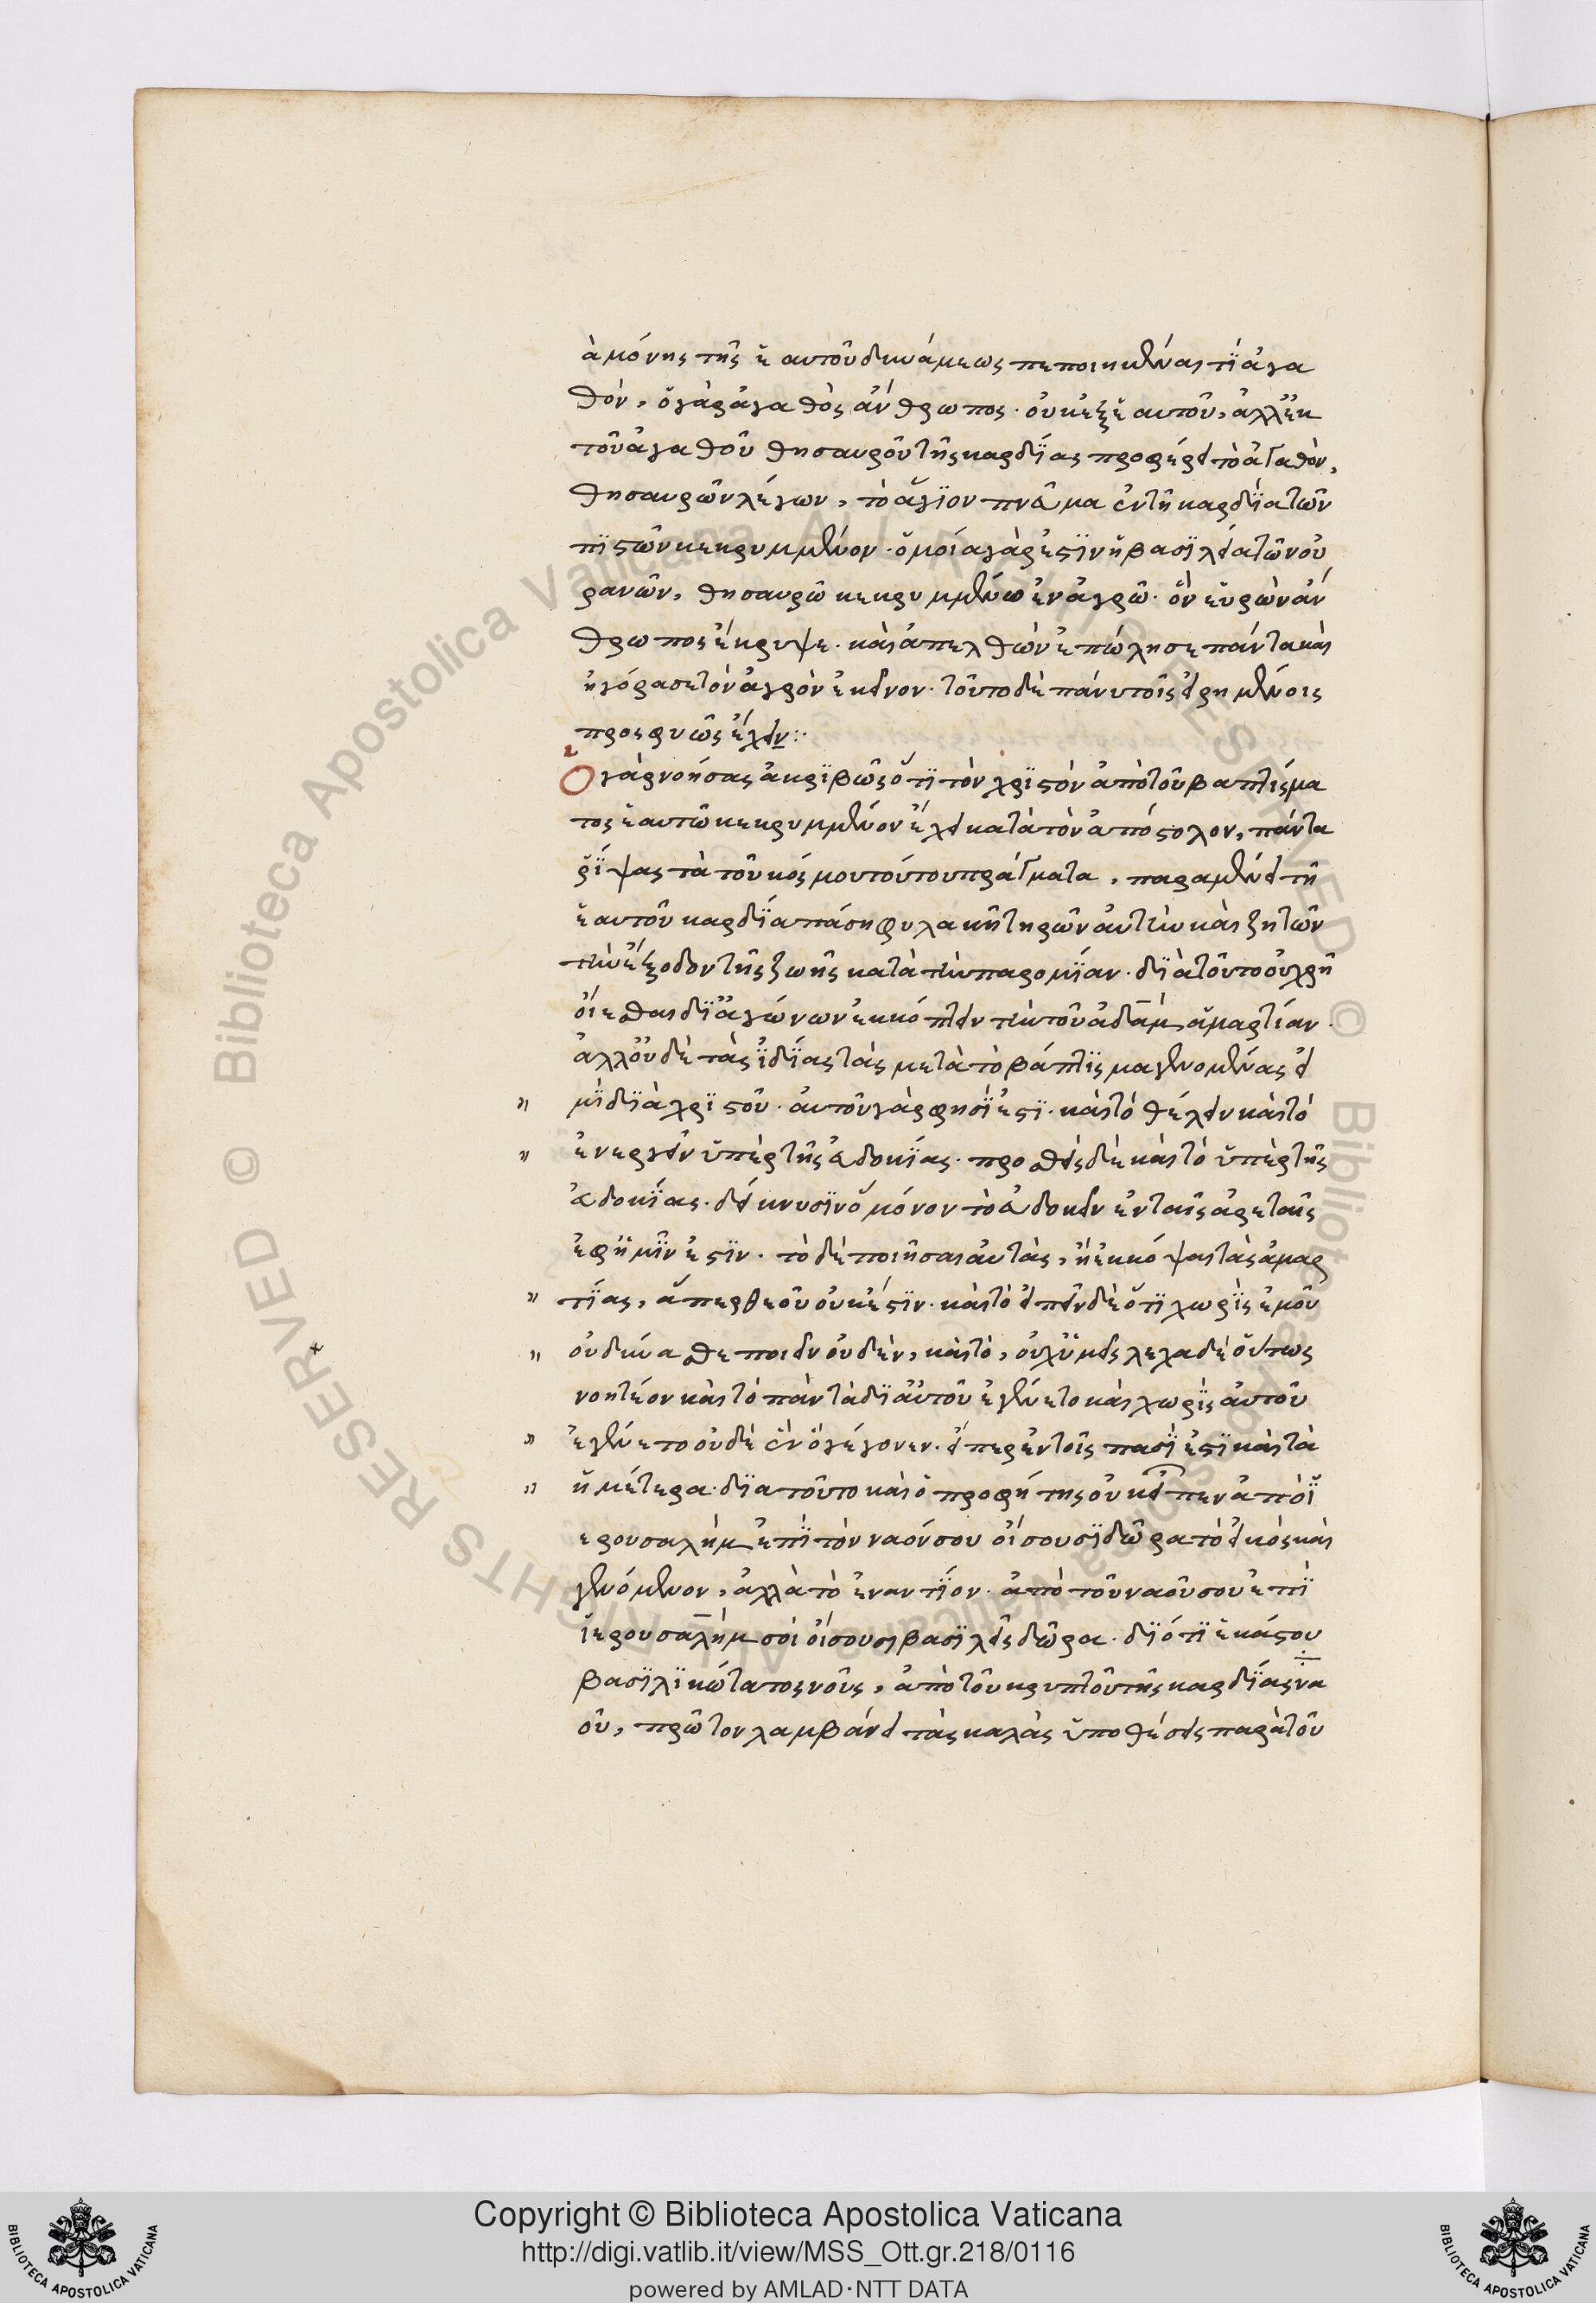 ὰ μόνης τῆς ἑαυτοῦ δυνάμεως πεποιηκέναι τϊ ἀγα
θόν, ὁ γὰρ ἀγαθὸς ἄνθρωπος· οὐκ ἐξ ἑαυτοῦ, ἀλλ' ἐκ
τοῦ ἀγαθοῦ θησαυροῦ τῆς καρδΐας προφέρει τὸ ἀγαθὸν,
θησαυρῶν λέγων, τὸ ἅγϊον πνεῦμα ἐν τῆ καρδΐα τῶν
πϊστῶν κεκρυμμένον· ὁμοία γὰρ ἐστϊν ἡ βασϊλεία τῶν οὐ
ρανῶν, θησαυρῶ κεκρυμμένω ἐν ἀγρῶ· ὃν εὑρὼν ἄν
θρωπος ἔκρυψε· καὶ ἀπελθὼν ἐπώλησε πάντα καὶ
ἠγόρασε τὸν ἀγρὸν ἐκεῖνον· τοῦτο δὲ πάνυ τοῖς εἰρημένοις
προσφυῶς ἔχειν:·
Ὁ γὰρ νοήσας ἀκρϊβῶς ὅτϊ τὸν χρϊστὸν ἀπὸ τοῦ βαπτίσμα
τος ἑαυτῶ κεκρυμμένον ἔχει κατὰ τὸν ἀπόστολον, πάντα
ῥΐψας τὰ τοῦ κόσμου τούτου πράγματα, παραμένει τῆ
ἑαυτοῦ καρδΐα πάση φυλακῆ τηρῶν αὐτὴν καὶ ζητῶν
τὴν ἔξοδον τῆς ζωῆς κατὰ τὴν παρομΐαν· δϊὰ τοῦτο οὐ χρὴ
οἴεσθαι δϊ' ἀγώνων ἐκκόπτειν τὴν τοῦ ἀδὰμ ἁμαρτίαν·
ἀλλ' οὐδὲ τὰς ἰδΐας τὰς μετὰ τὸ βάπτϊσμα γενομένας εἰ
μὶ δϊὰ χρϊστοῦ· αὐτοῦ γὰρ φησΐ ἐστϊ· καὶ τὸ θέλειν καὶ τὸ
ἐνεργεῖν ὑπὲρ τῆς εὐδοκΐας· προσθεὶς δὲ καὶ τὸ ὑπὲρ τῆς
εὐδοκΐας· δείκνυσϊν ὃ μόνον τὸ εὐδοκεῖν ἐν ταῖς ἀρεταῖς
ἐφ' ἡμῖν ἐστϊν· τὸ δὲ ποιῆσαι αὐτὰς, ἢ ἐκκόψαι τὰς ἁμαρ
τΐας, ἄπερ θεοῦ οὐκ ἔστϊν· καὶ τὸ εἰπεῖν δὲ ὅτϊ χωρὶς ἐμοῦ
οὐ δύνασθε ποιεῖν οὐδὲν, καὶ τὸ, οὐχ ὑμεῖς λεχαδὲ οὕτως
νοητέον καὶ τὸ πάντα δϊ' αὐτοῦ ἐγένετο καὶ χωρὶς αὐτοῦ
ἐγένετο οὐδὲ ἓν ὃ γέγονεν· εἴπερ ἐν τοῖς πασΐ ἐστϊ καὶ τὰ
ἡμέτερα· δϊα τοῦτο καὶ ὁ προφήτης οὐκ εἶπεν ἀπὸ ἱ
ερουσαλὴμ ἐπὶ τὸν ναόν σου οἴσουσϊ δῶρα τὸ εἰκὸς καὶ
γενόμενον, ἀλλὰ τὸ ἐναντΐον· ἀπὸ τοῦ ναοῦ σου ἐπὶ
ἱερουσαλὴμ σοὶ οἴσουσι βασϊλεῖς δῶρα· δϊότϊ ἑκάστου
βασϊλϊκώτατος νοῦς, ἀπὸ τοῦ κρυπτοῦ τῆς καρδΐας να
οῦ, πρῶτον λαμβάνει τὰς καλὰς ὑποθέσεις παρὰ τοῦ
Copyright © Biblioteca Apostolica Vaticana
http://digi.vatlib.it/view/MSS_Ott.gr.218/0116
powered by AMLAD·NTT DATA